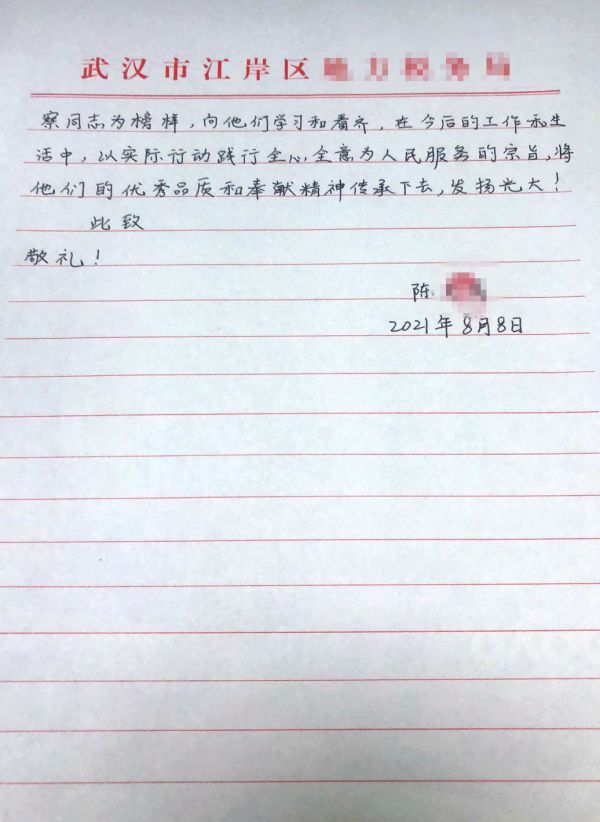 武汉市江岸区
察同志为榜样，向他们学习和看齐，在今后的工作和生
活中，以实际行动践行全心全意为人民服务的宗旨，将
他们的优秀品质和奉献精神传承下去，发扬光大！
此致
敬礼！
陈
2021年8月8日